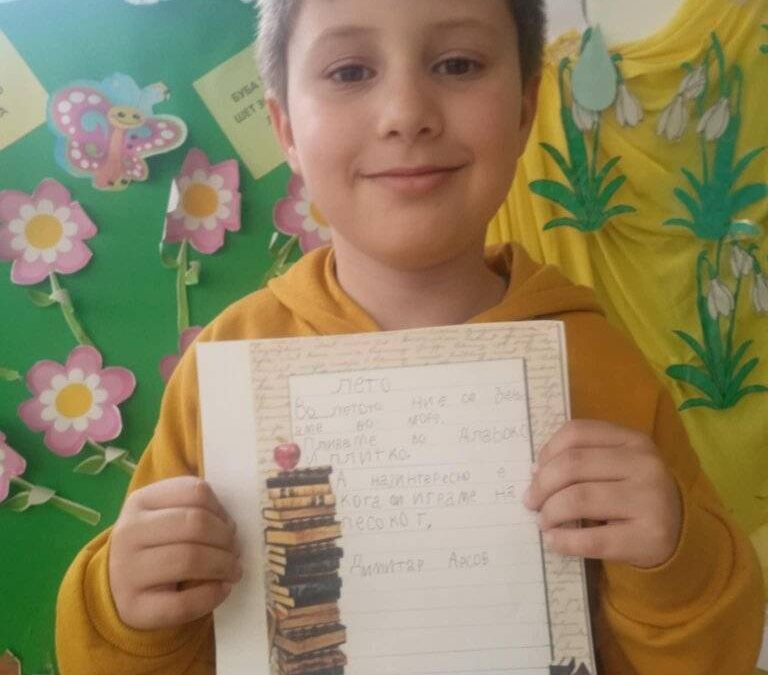 БУБА
ШЕТ
А
ЛЕТО
Во летото ние се
аме во море.
Пливаме во длабоко
и плитко.
А најинтересно е
кога си играме на
песокот,
Димитар